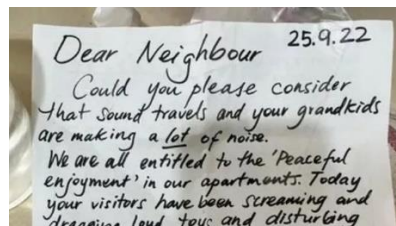 Dear Neighbour 25.9.22
Could you please consider
that sound travels and your grandkids
are making a lot of noise.
We are all entitled to the 'Peaceful
enjoyment' in our apartments. Today
your visitors have been screaming and
dragging loud toys and disturbing